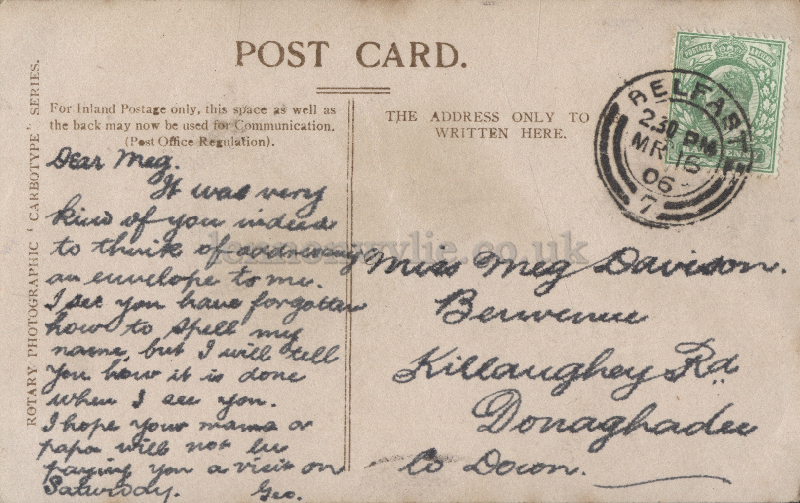 POST CARD.
For Inland Postage only, this space as well as
the back may now be used for Communication.
(Post Office Regulation).
THE ADDRESS ONLY TO
WRITTEN HERE.
ROTARY PHOTOGRAPHIC "CARBOTYPE" SERIES.
POSTAGE
BELFAST
2.30 PM
MR 16
06
7
Dear Meg.
It was very
kind of you indeed
to think of addressing
an envelope to me.
I see you have forgotten
how to spell my
name, but I will tell
you how it is done
when I see you.
I hope your mama or
papa will not be
paying you a visit on
Saturday. Geo.
Miss Meg Davison.
Benvenue
Killaughey Rd
Donaghadee
Co Down.